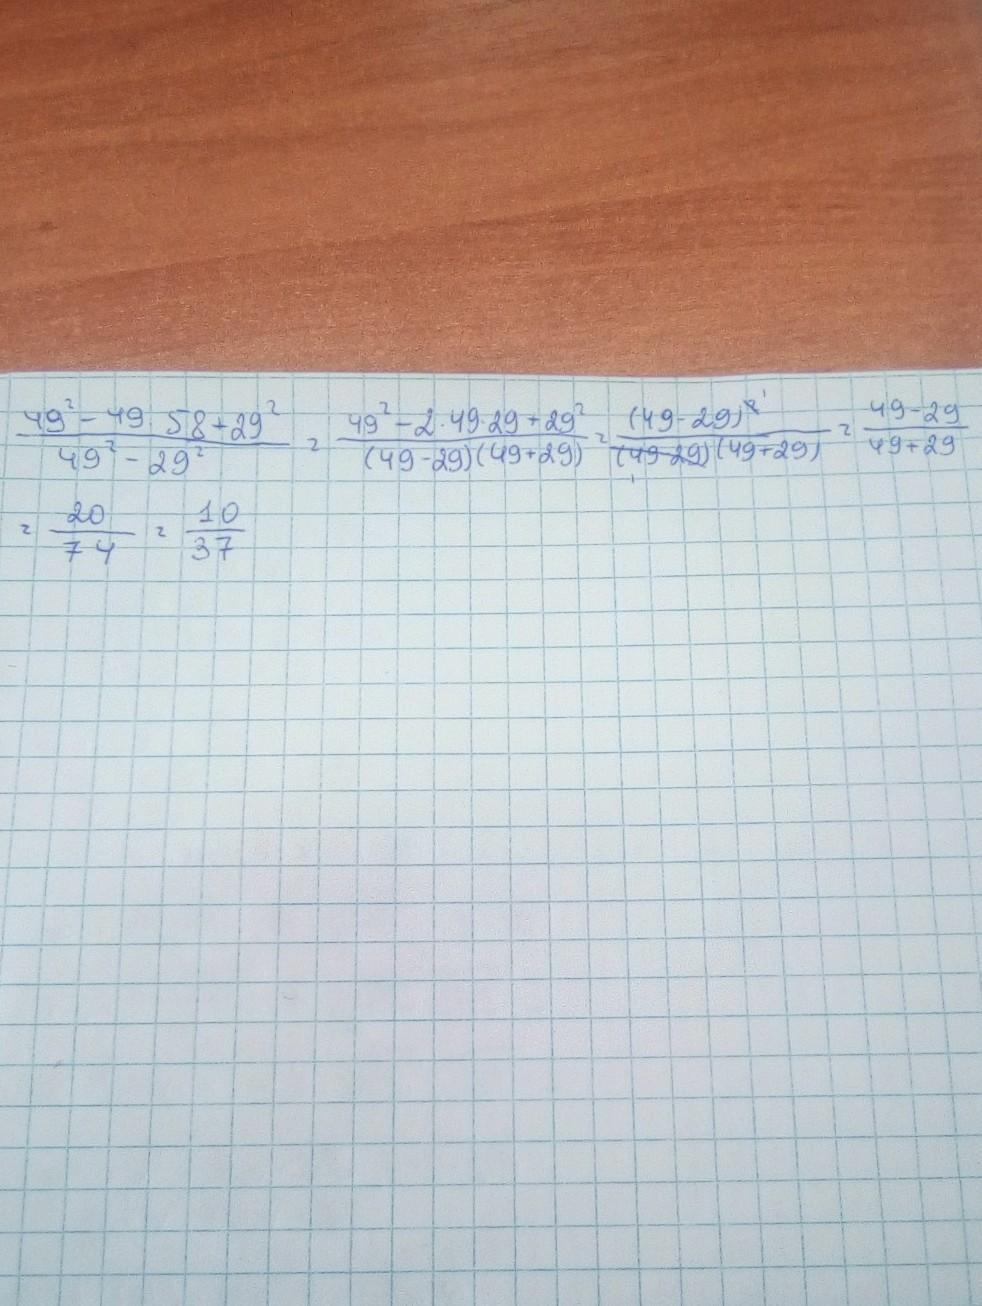 (49² - 49 · 58 + 29²) / (49² - 29²) = (49² - 2 · 49 · 29 + 29²) / ((49 - 29)(49 + 29)) = (49 - 29)² ¹ / ((49 - 29) ¹ (49 + 29)) = (49 - 29) / (49 + 29)
= 20 / 74 = 10 / 37